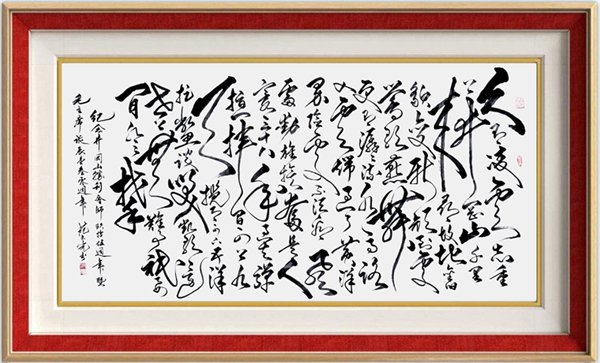 久有凌云志重
上井冈山千里
来寻故地旧
貌变新颜到处
莺歌燕舞
更有潺潺流水高路
入云端过了黄洋
界险处不须看风
雷动旌旗奋是人
寰三十八年过去弹
指一挥间可上九
天揽月可下五洋
捉鳖谈笑凯歌还
世上无难事只要
肯登攀
纪念井冈山胜利会师玖拾伍週年暨
毛主席诞辰壹週年书